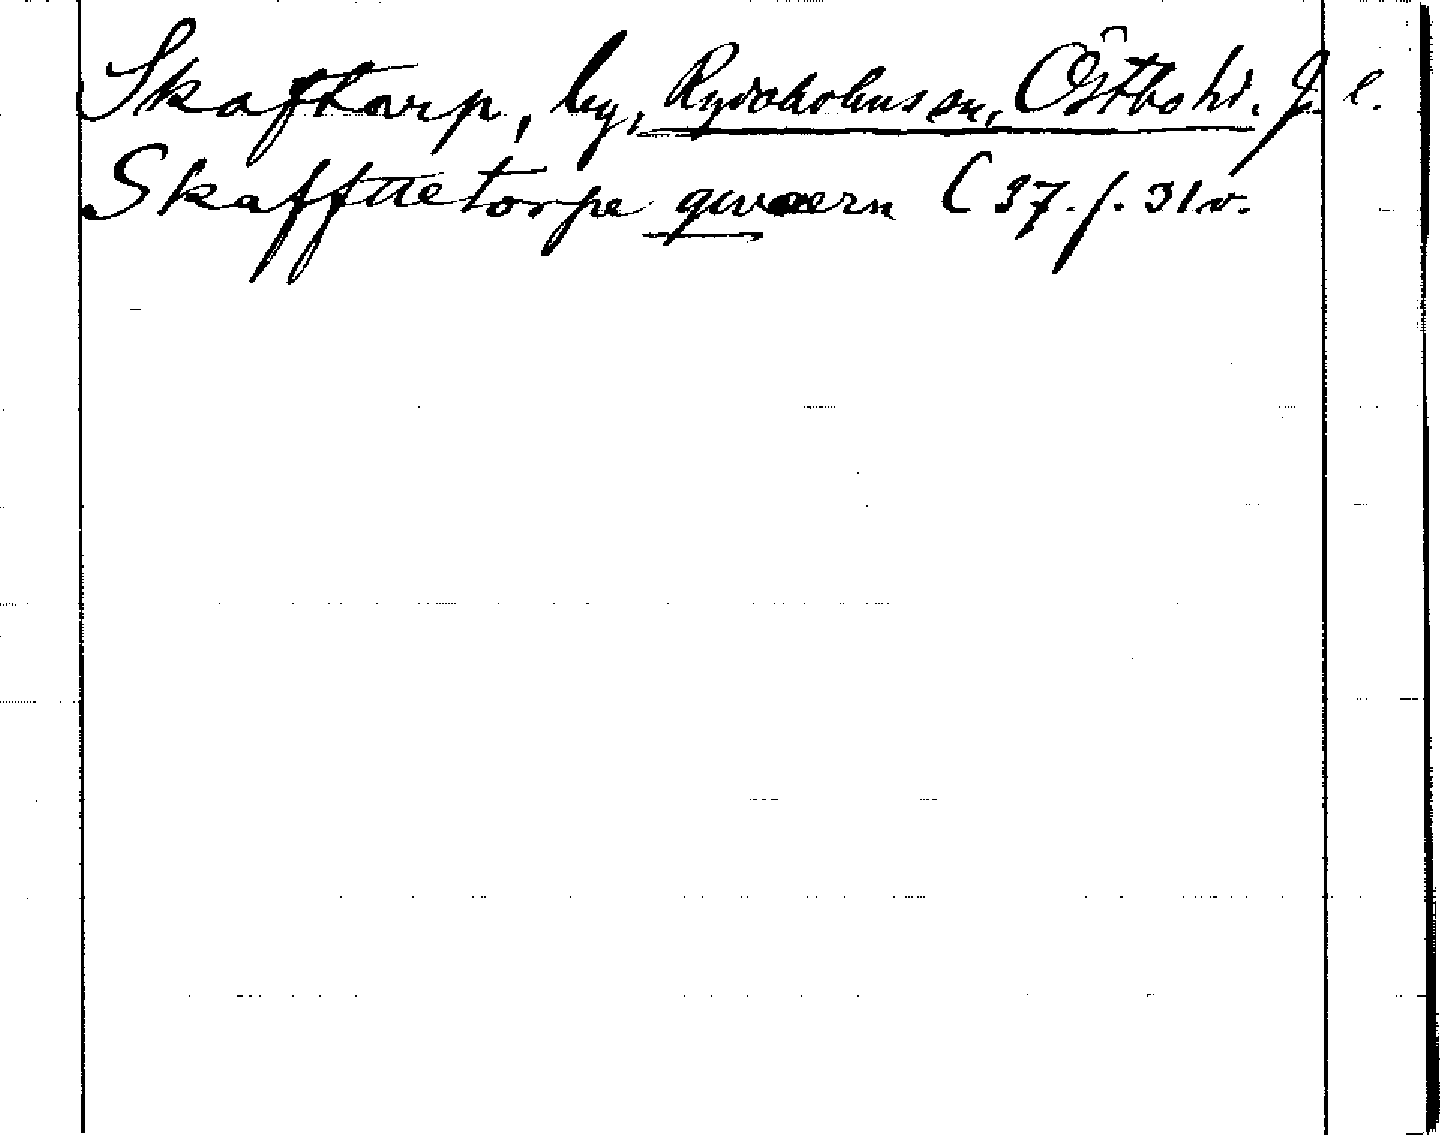 Skaftarp, by, Rydaholms sn, Östbo hd. J. l.
Skaffttetorpe qwaern (37. f. 31v.